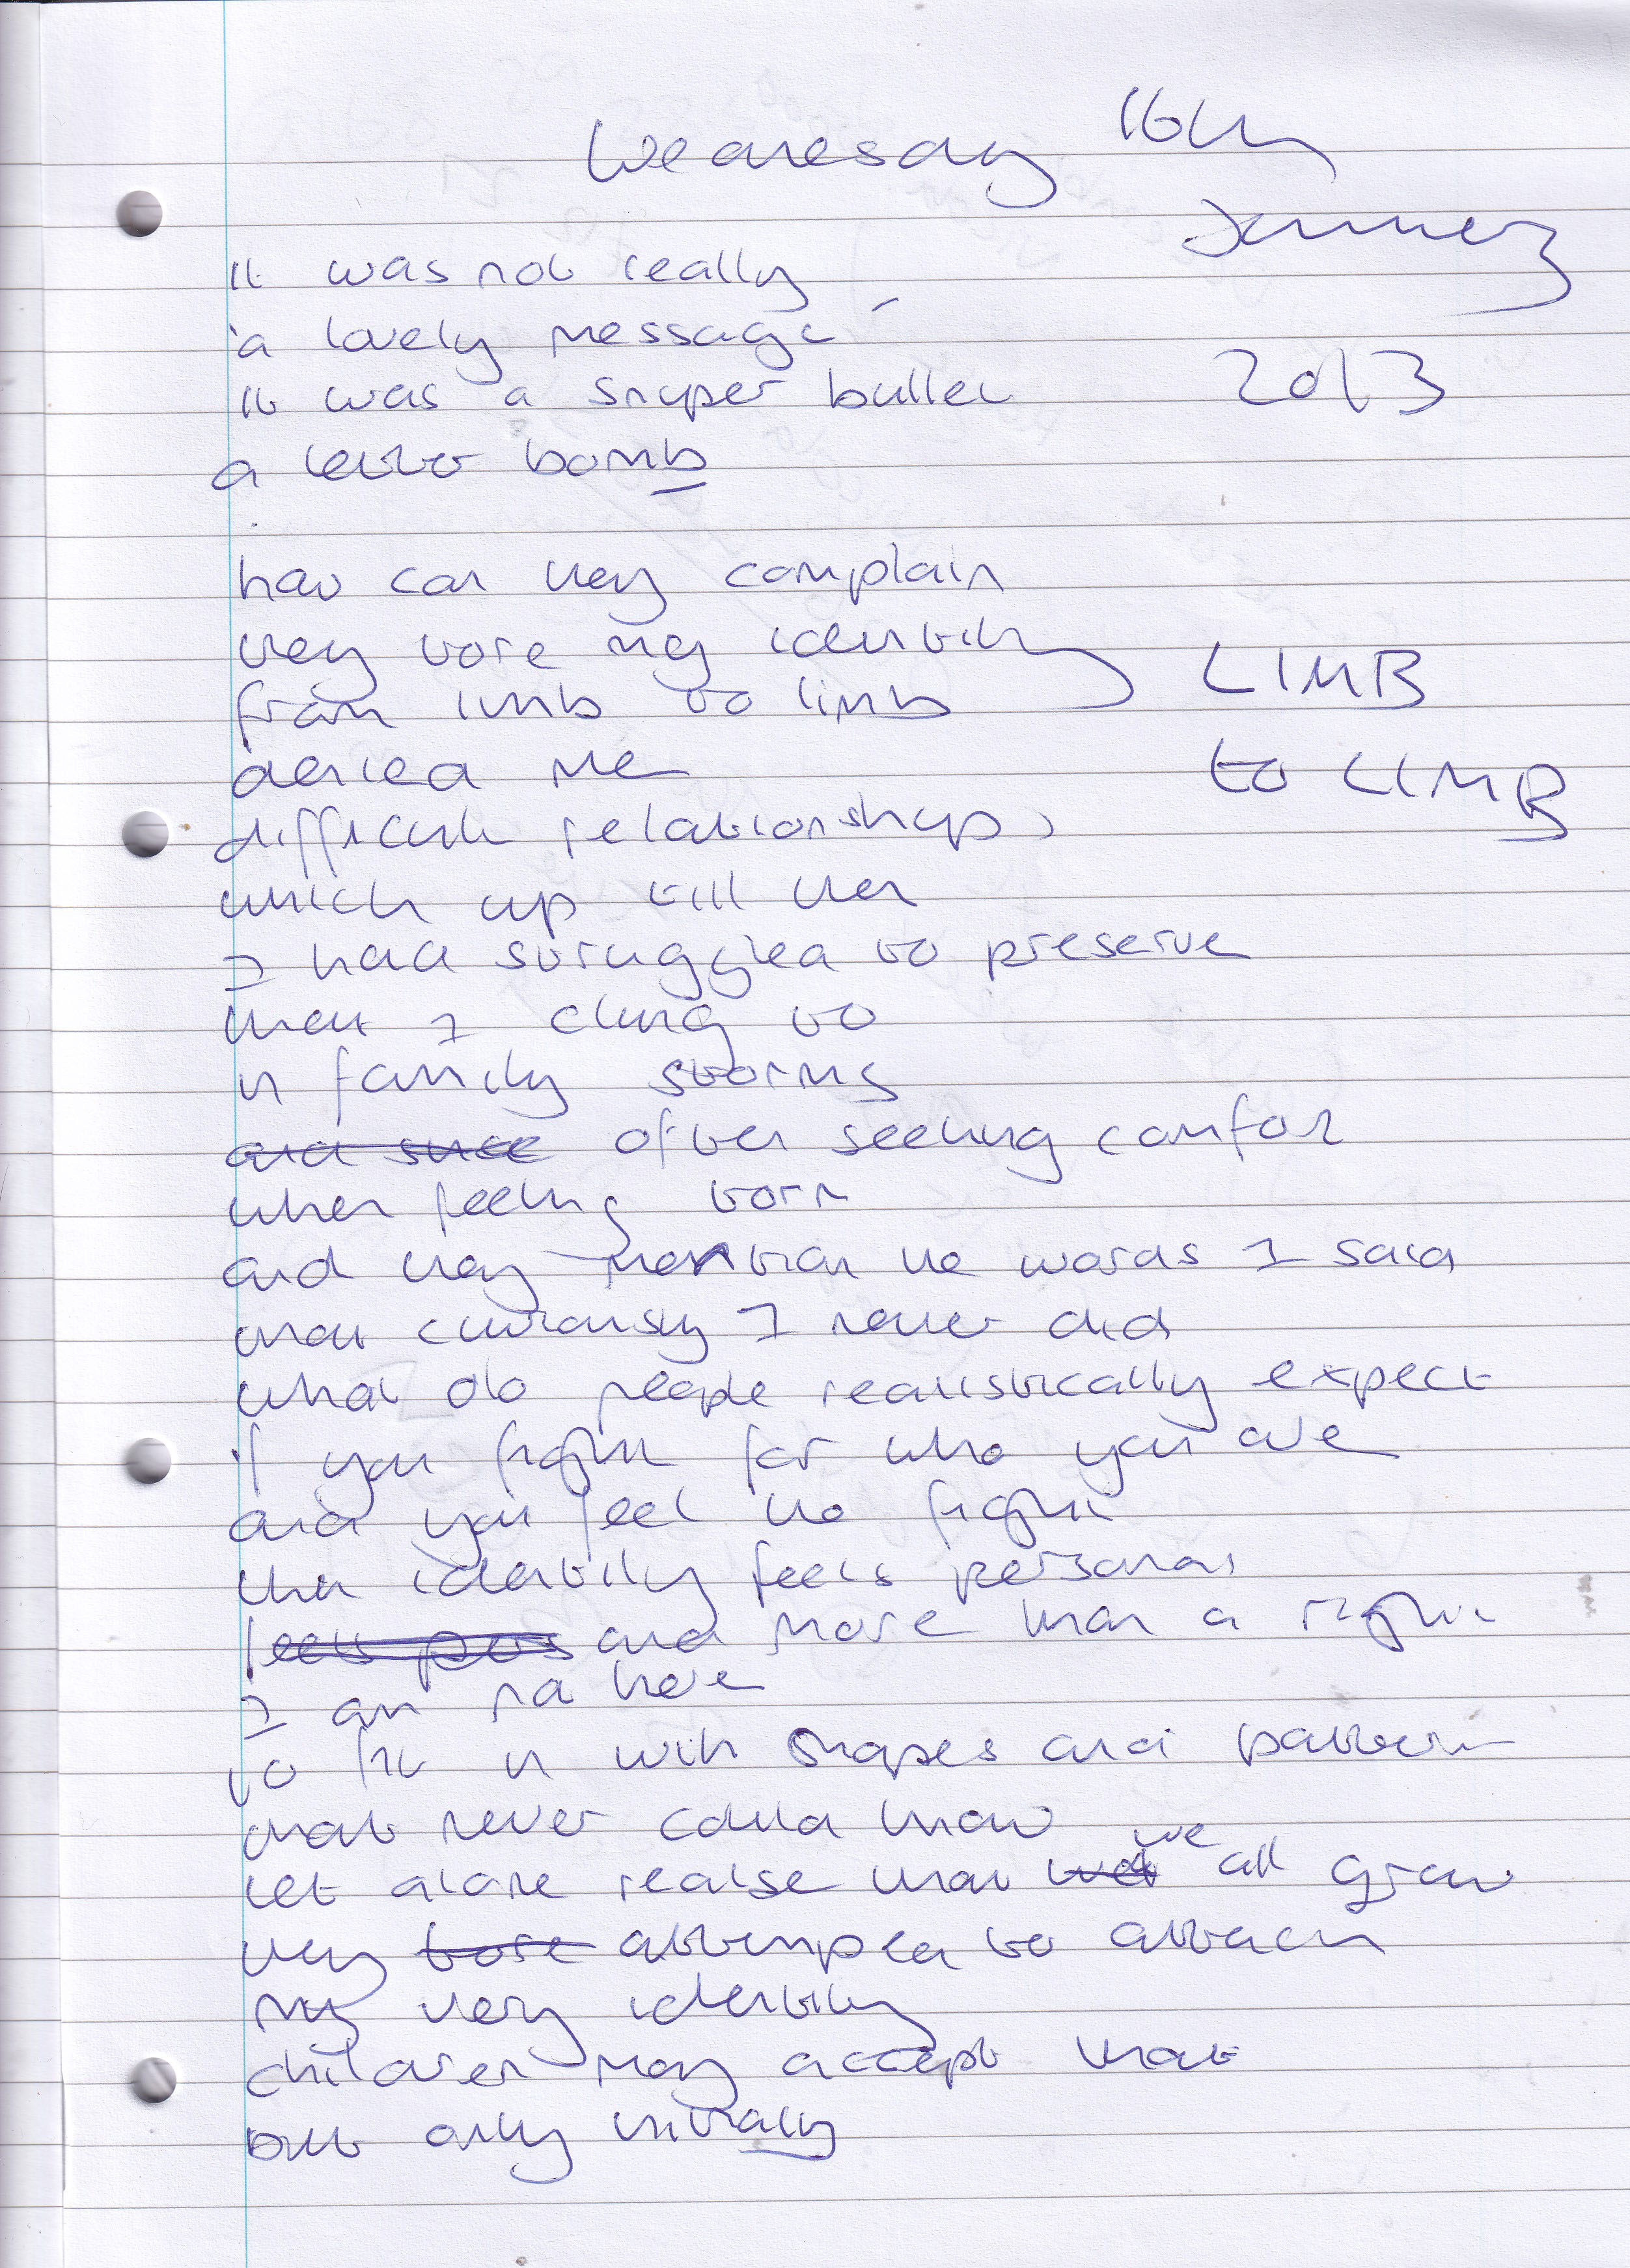 Wednesday 16th
January
2013
it was not really
'a lovely message'
it was a sniper bullet
a letter bomb
how can they complain
they tore my identity
from limb to limb
LIMB
to LIMB
denied me
difficult relationships,
which up till then
I had struggled to preserve
that I clung to
in family storms
often seeking comfort
when feeling torn
and they the words I said
that curiously I never did
what do people realistically expect
if you fight for who you are
and you feel the fight
the identity feels personal
and more than a right
I am not here
to fit in with shapes and pattern
that never could know
let alone realise that we all grow
they tore attempted to attach
my very identity
children may accept that
but only initially